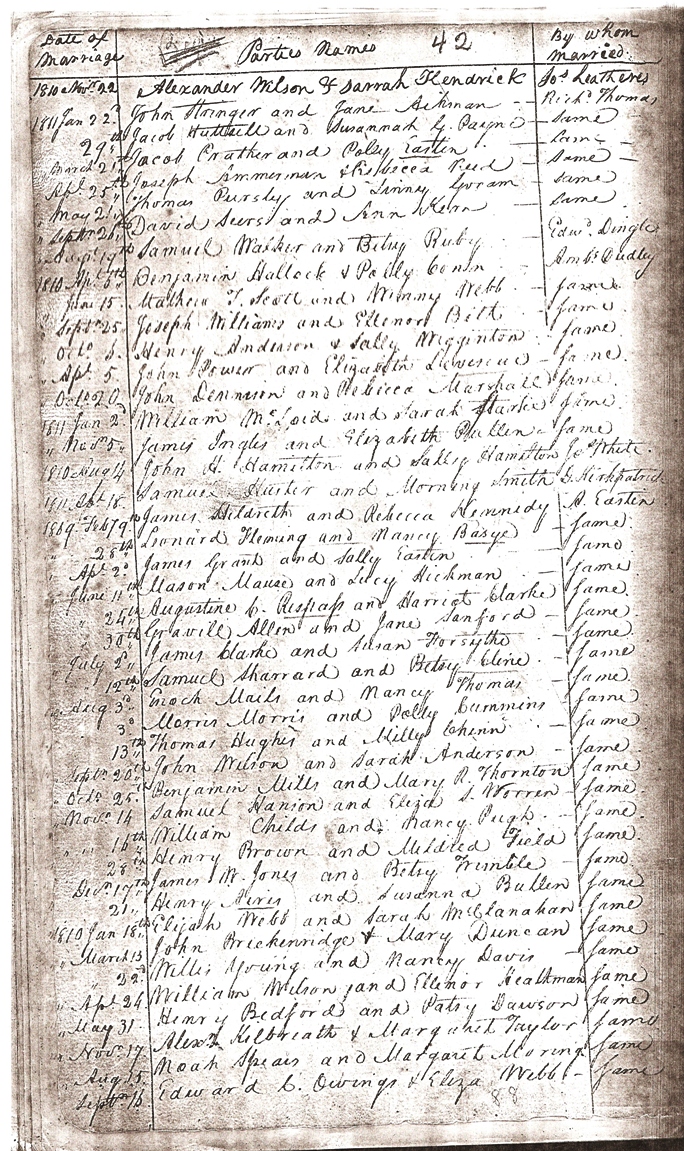 Date of Marriage Parties Names 42 By whom Married
1810 Novr 22 Alexander Wilson & Sarrah Kendrick Jos Leathers
1811 Jan 22d John Stringer and Jane Ackman - Richd Thomas
" 29th Jacob Huttsell and Susannah G. Payne - same
March 21st Jacob Prather and Polly Easten - same
Apl 25th Joseph Ammerman & Rebecca Reed - same -
May 2d Thomas Pursley and Linney Goram - same
" Septr 26 David Seers and Ann Kern - same
" Augt 19th Samuel Walker and Betsy Ruby Edwd Dingle
1810 Apl 6th Benjamin Hallock & Polly Conn Ambs Dudley
June 15 Mathew T. Scott and Winny Webb - same
" Septr 25 Joseph Williams and Ellenor Bell same
" Octo 4 Henry Anderson & Sally Wigginton same
" Apl 5 John Power and Elizabeth - same
" Octo 20 John Dennison and Rebecca Marshall same
1811 Jan 2d William McLoid and Sarah Starke same
" Novr 5 James Ingles and Elizabeth Pullen - same
1810 Aug 14 John H. Hamilton and Sally Hamilton Jos White
1811 18 Samuel Huster and Morning Smith G. Kirkpatrick
1809 Feb 9th James Hildreth and Rebecca Kennedy A. Easten
" 28th Leonard Fleming and Nancy Basye - same
" Apl 2d James Grant and Sally Easten - same
" June 11th Mason Mause and Lucy Hickman same
" 24th Augustine C. Respass and Harriot Clarke same
" 30th Gravill Allen and Jane Sanford - same
" July 2d James Clarke and Susan Forsythe - same
" 12th Samuel Sharrard and Betsy Cline - same
" Aug 3d Enoch Mails and Nancy Thomas - same
3d Morris Morris and Polly Cummins same
13th Thomas Hughs and Milly Chinn - same
Septr 20th John Wilson and Sarah Anderson - same
" Octo 25 Benjamin Mills and Mary R. Thornton same
" Novr 14 Samuel Hanson and Eliza S. Worren - same
" 16th William Childs and Nancy Pugh - same
28th Henry Brown and Mildred Field same
Decr 19th James M. Jones and Betsy Trimble - same
21 Henry Aeris and Susanna Bullen same
1810 Jan 18th Elijah Webb and Sarah McClanahan same
" March 13 John Brickenridge & Mary Duncan same
" 22d Willis Young and Nancy Davis - same
" Apl 24 William Wilson and Ellenor Heathman same
" May 31 Henry Bedford and Patsy Dawson same
" Novr 17 Alexr Kilbreath & Margaret Taylor same
" Aug 15 Noah Spears and Margaret same
Septr 16 Edward C. Owings & Eliza Webb - same
88